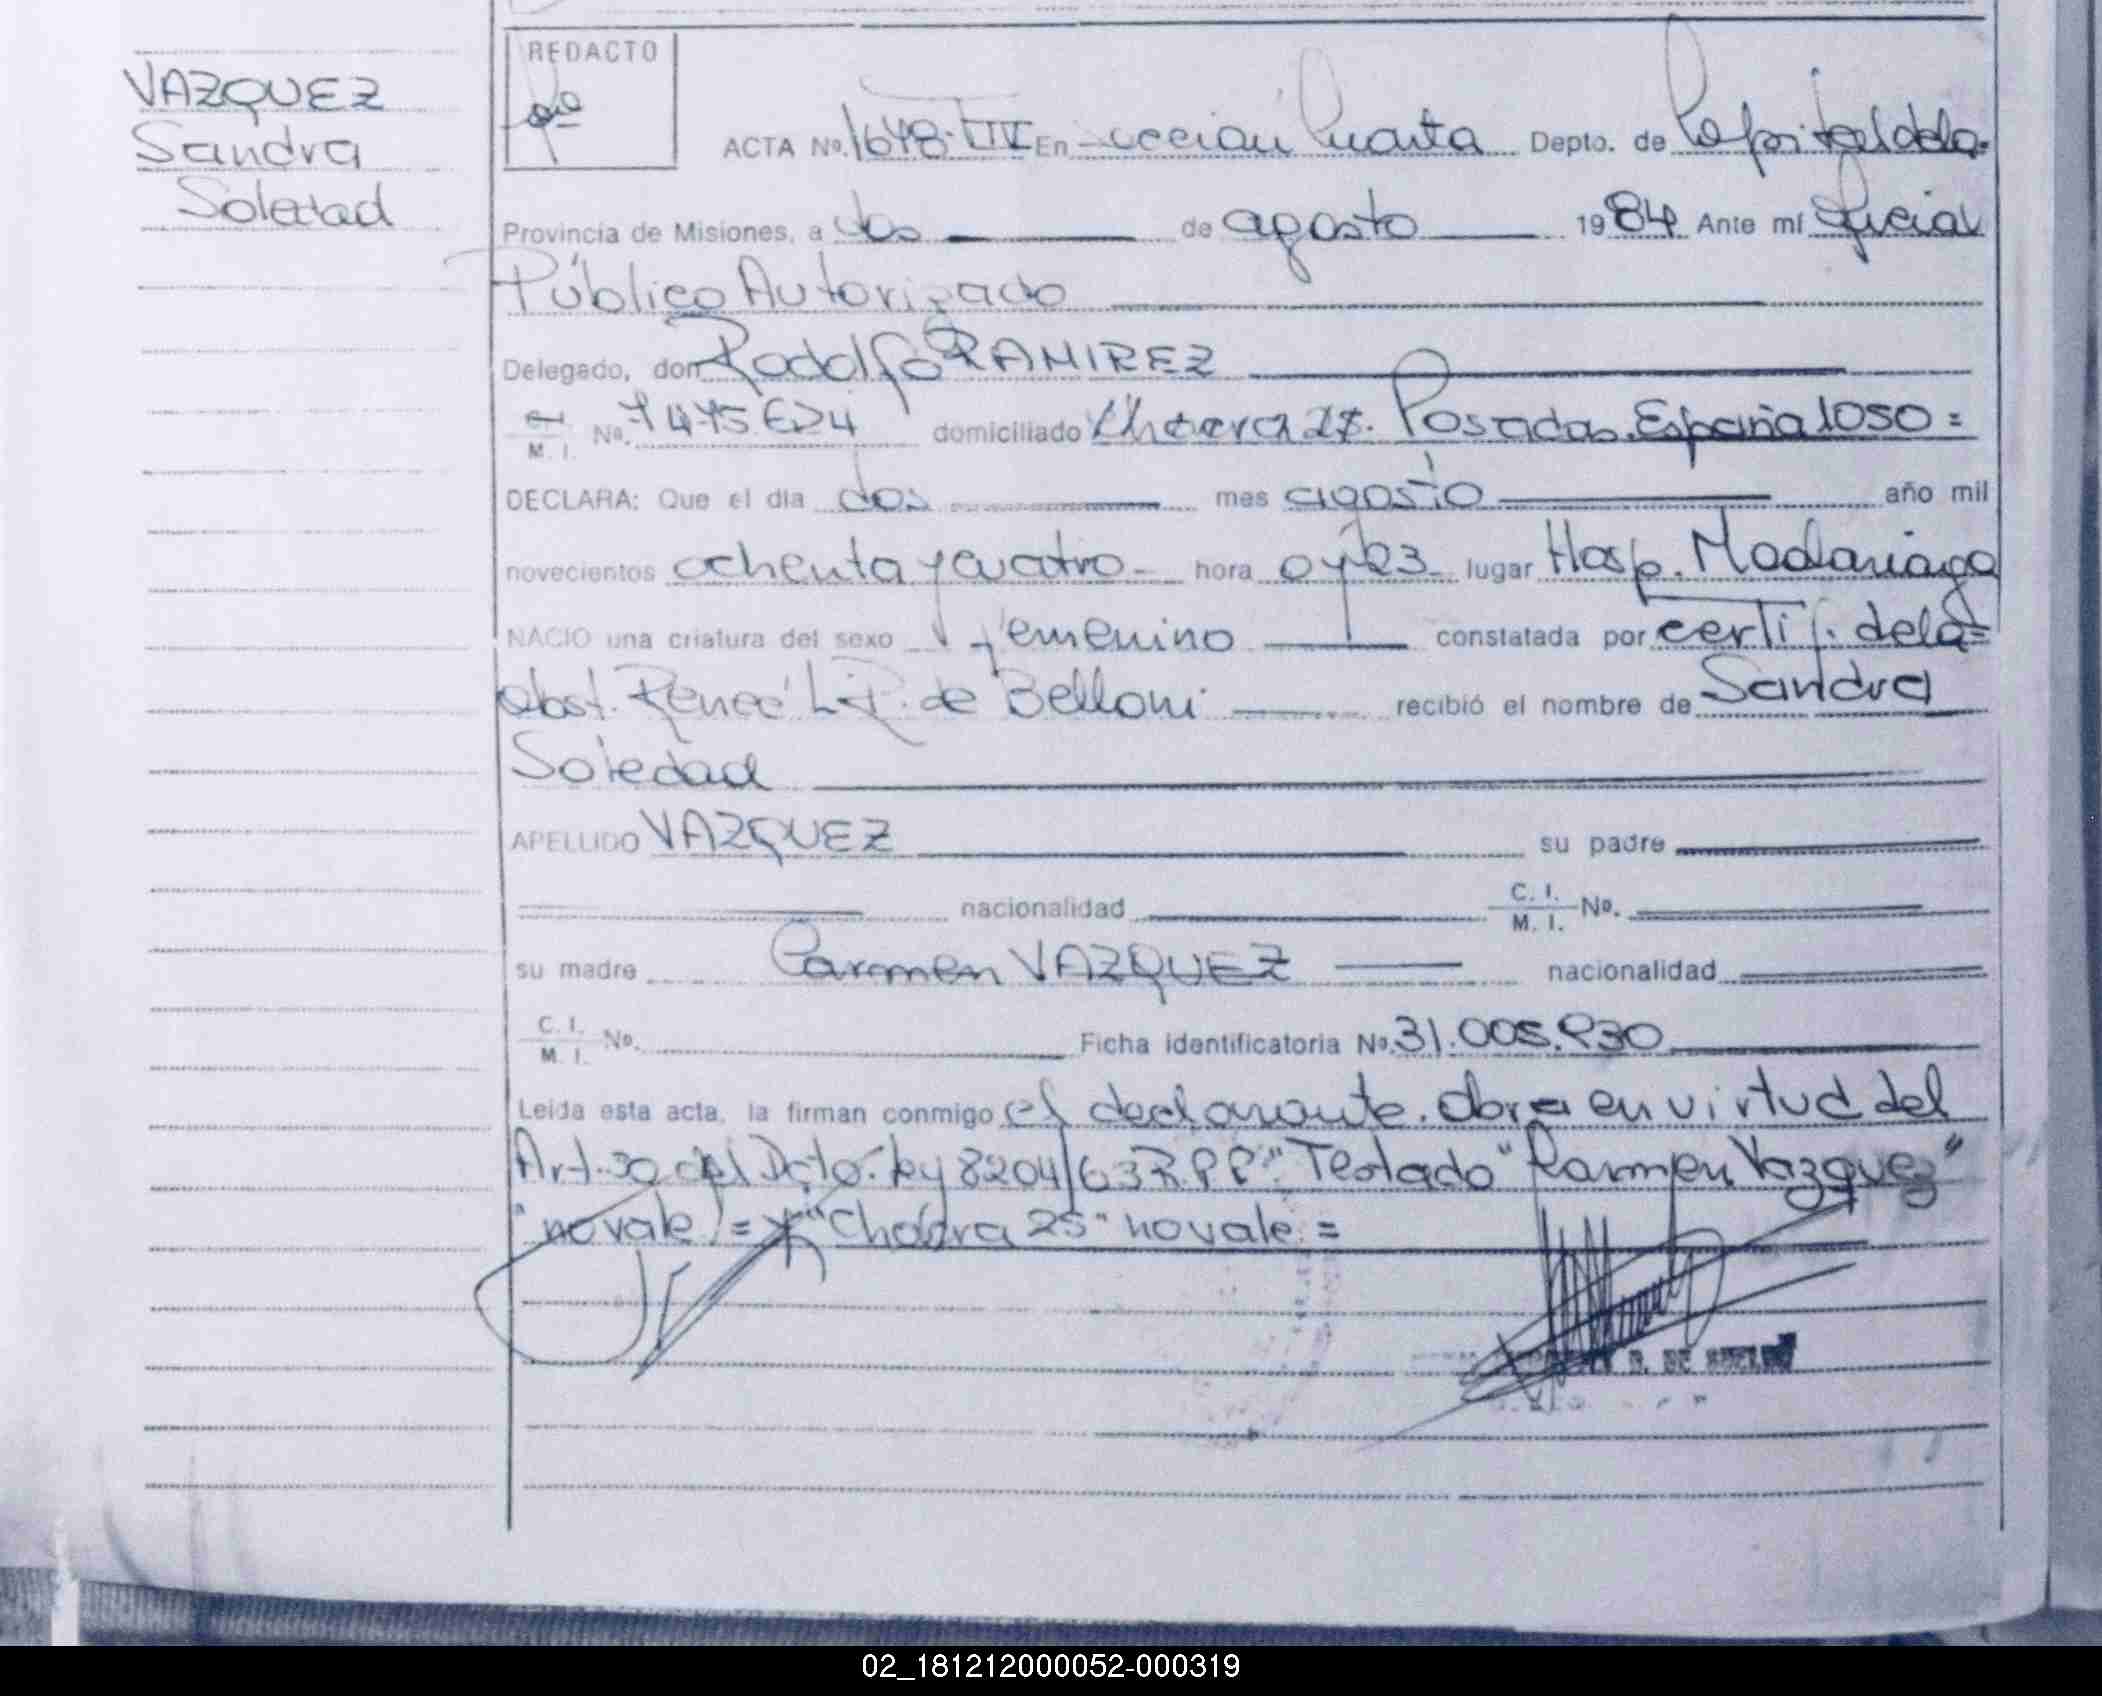 VAZQUEZ
Sandra
Soledad
REDACTO
ACTA Nº. 1648-TIV En sección Cuarta Depto. de Capital de la
Provincia de Misiones, a dos de agosto 1984 Ante mí Oficial
Público Autorizado
Delegado, don Rodolfo RAMIREZ
M. I. Nº. domiciliado Chacra 25. Posadas. España 1050 =
DECLARA: Que el día dos mes agosto año mil
novecientos ochenta y cuatro hora 0 y 23 lugar Hosp. Madariaga
NACIO una criatura del sexo femenino constatada por certif. de la =
obst. Reneé L.R. de Belloni recibió el nombre de Sandra
Soledad
APELLIDO VAZQUEZ su padre
nacionalidad C. I. M. I. Nº.
su madre Carmen VAZQUEZ nacionalidad
C. I. M. I. Nº. Ficha identificatoria Nº. 31.005.930
Leída esta acta, la firman conmigo el declarante. obra en virtud del
Art. 30 del Dcto. Ley 8204/63 R.PP." Testado "Carmen Vazquez"
"no vale = "Chacra 25" no vale =
R. DE
02_181212000052-000319